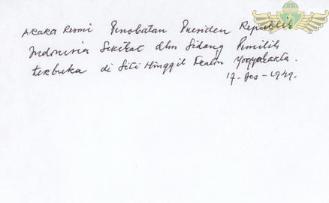 Acara Resmi Penobatan Presiden Republik
Indonesia Serikat dlm Sidang Pemilih
terbuka di Siti Hinggil Kraton Yogyakarta.
17-Des-1949.